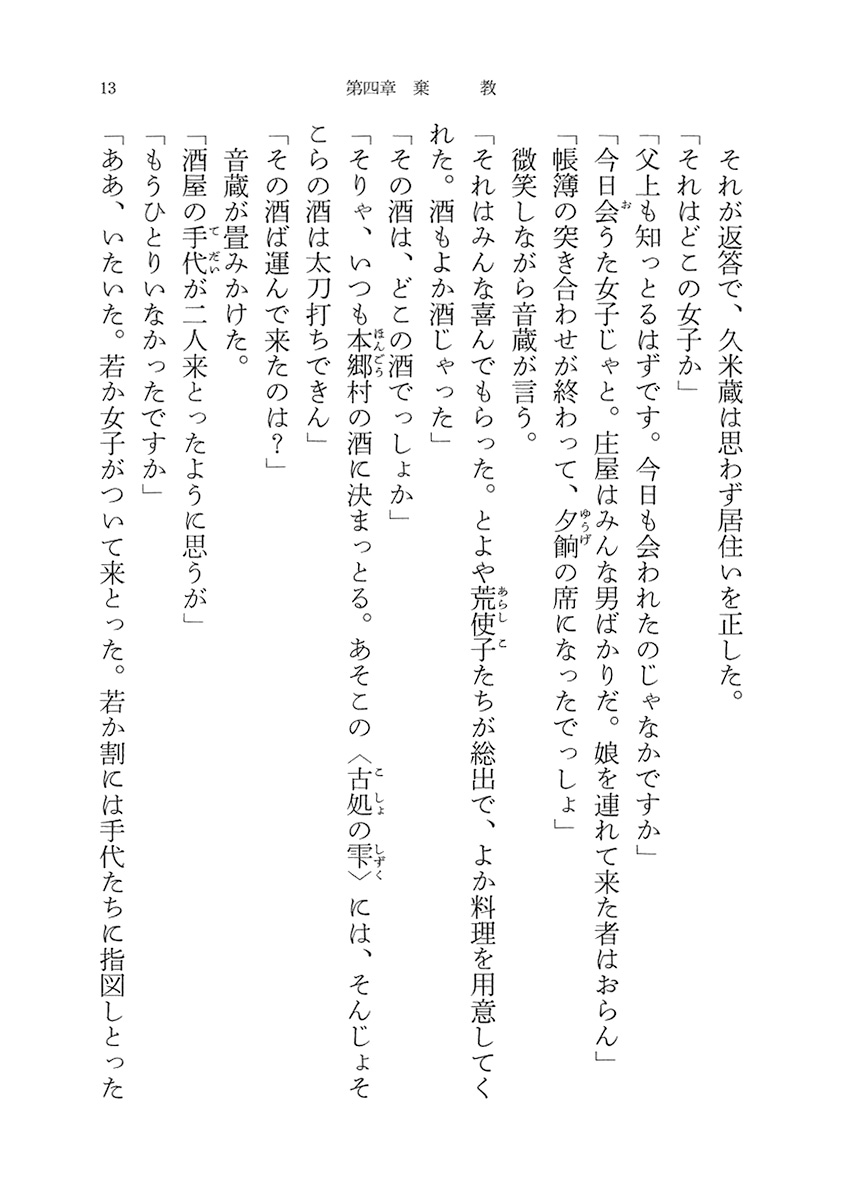 13
第四章 棄 教
それが返答で、久米蔵は思わず居住いを正した。
「それはどこの女子か」
「父上も知っとるはずです。今日も会われたのじゃなかですか」
「今日会うた女子じゃと。庄屋はみんな男ばかりだ。娘を連れて来た者はおらん」
「帳簿の突き合わせが終わって、夕餉の席になったでっしょ」
微笑しながら音蔵が言う。
「それはみんな喜んでもらった。とよや荒使子たちが総出で、よか料理を用意してく
れた。酒もよか酒じゃった」
「その酒は、どこの酒でっしょか」
「そりゃ、いつも本郷村の酒に決まっとる。あそこの〈古処の雫〉には、そんじょそ
こらの酒は太刀打ちできん」
「その酒ば運んで来たのは？」
音蔵が畳みかけた。
「酒屋の手代が二人来とったように思うが」
「もうひとりいなかったですか」
「ああ、いたいた。若か女子がついて来とった。若か割には手代たちに指図しとった